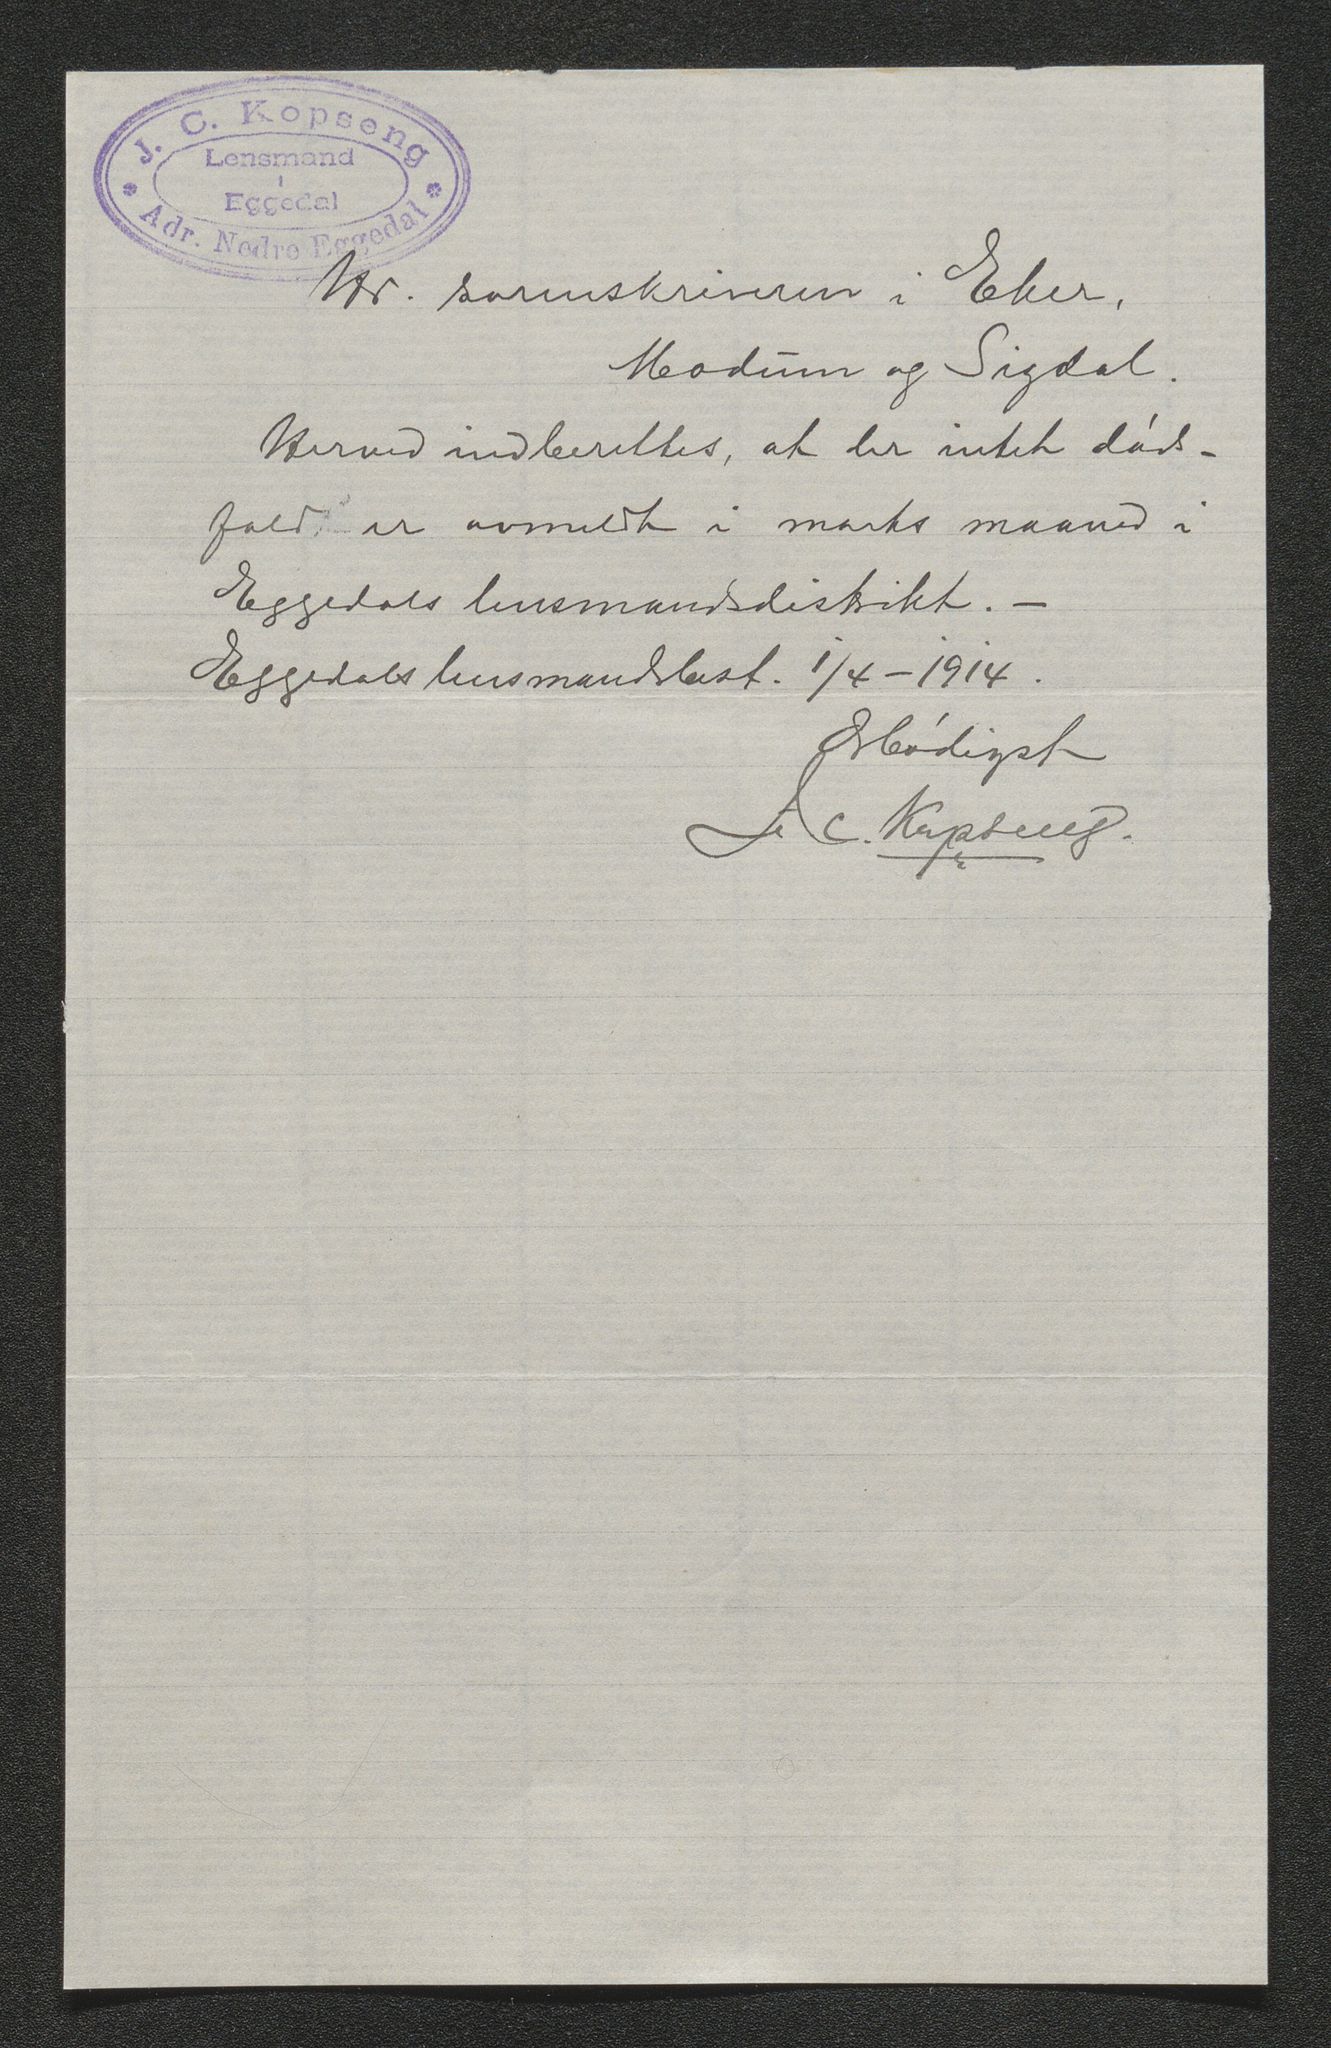 J. C. Kopseng
Lensmand
i
Eggedal
Adr. Nedre Eggedal
Hr. sorenskriveren i Eker,
Modum og Sigdal.
Herved indberettes, at der intet døds-
fald er avmeldt i marts maaned i
Eggedals lensmandsdistrikt. —
Eggedals lensmandsbest. 1/4 – 1914.
Ærbødigst
J. C. Kopseng.